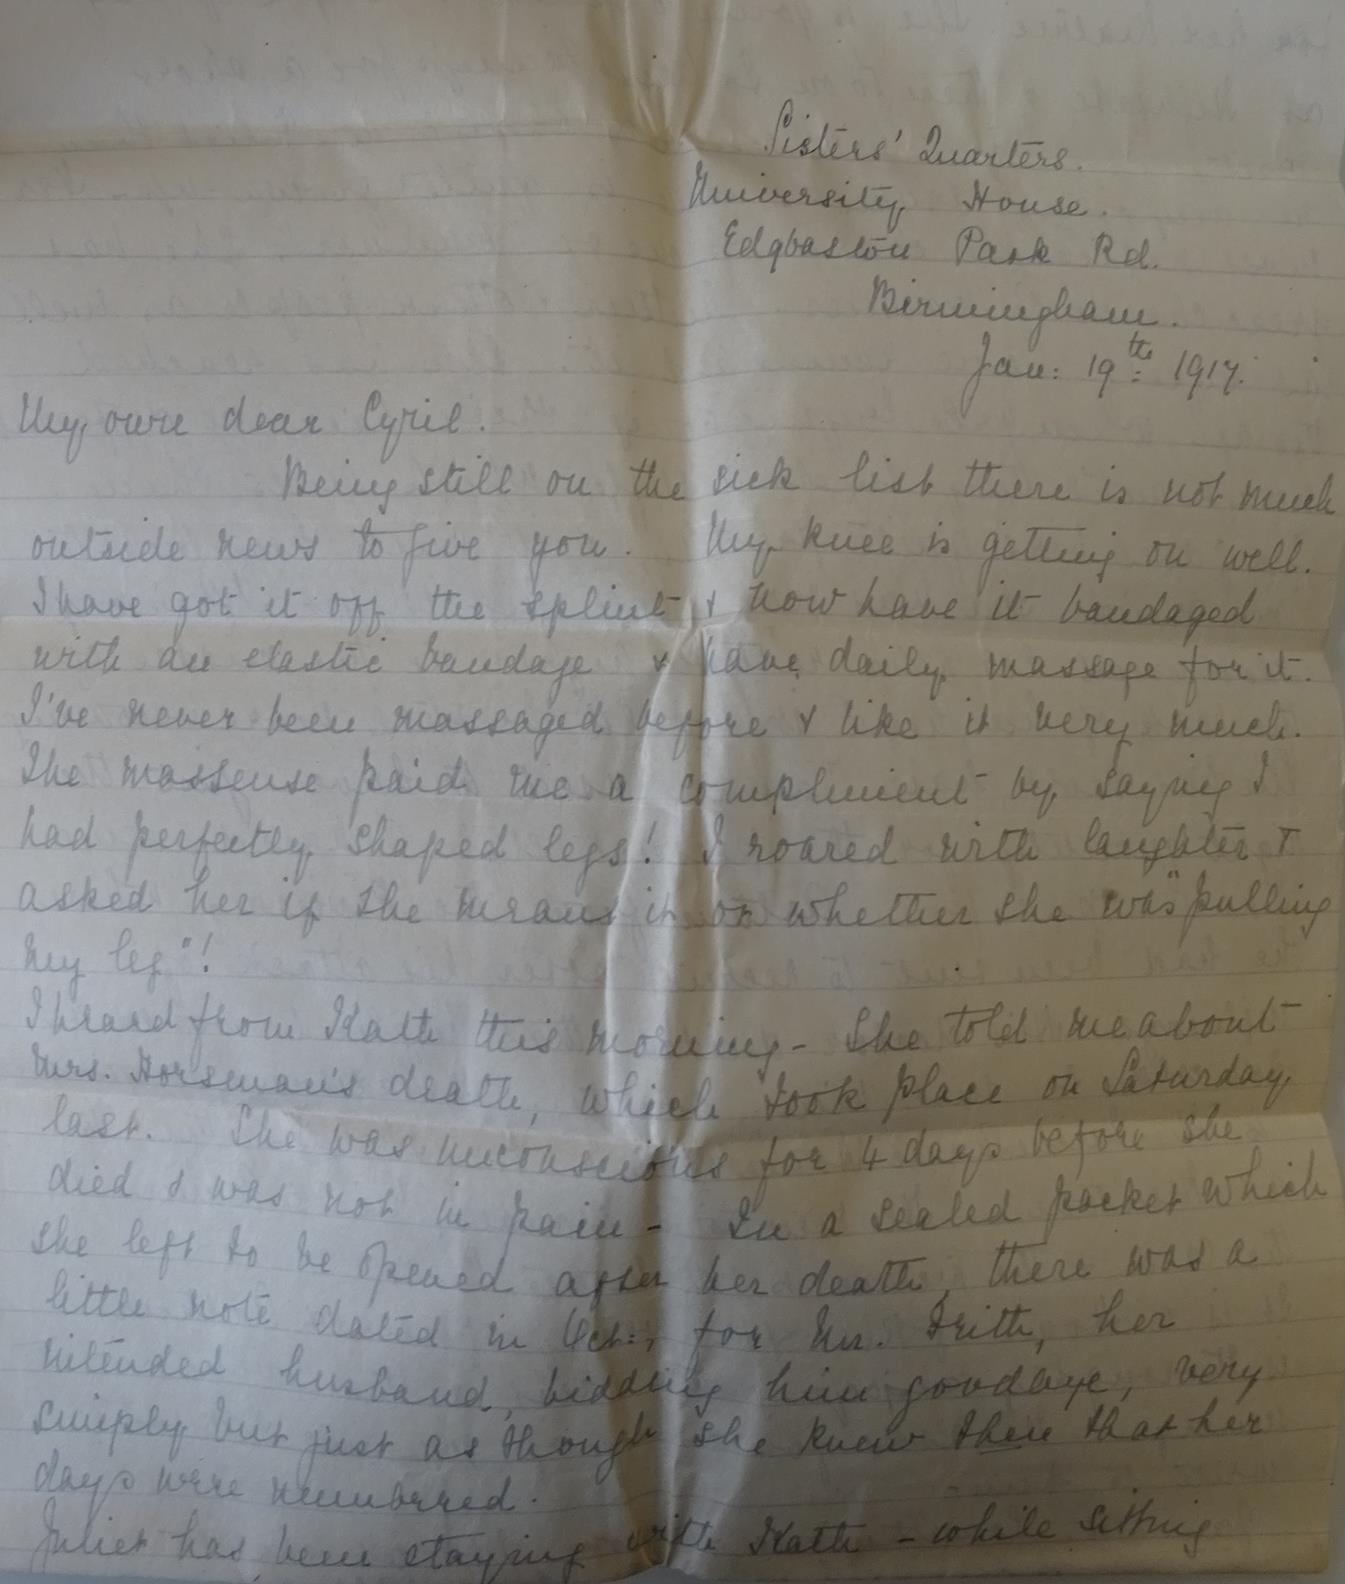 Sisters' Quarters.
University House.
Edgbaston Park Rd.
Birmingham.
Jan: 19th: 1917.
My own dear Cyril.
Being still on the sick list there is not much
outside news to give you. My knee is getting on well.
I have got it off the splint & now have it bandaged
with an elastic bandage & have daily massage for it.
I've never been massaged before & like it very much.
The masseuse paid me a compliment by saying I
had perfectly shaped legs! I roared with laughter &
asked her if she meant it or whether she was "pulling
my leg"!
I heard from Kath this morning - She told me about
Mrs. Horseman's death, which took place on Saturday
last. She was unconscious for 4 days before she
died & was not in pain - In a sealed packet which
she left to be opened after her death, there was a
little note dated in Oct:, for Mr. Frith, her
intended husband, bidding him goodbye, very
simply but just as though she knew then that her
days were numbered.
Juliet has been staying with Kath - while sitting